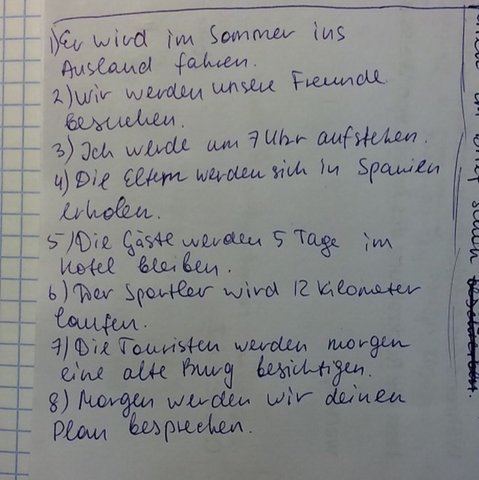 1) Er wird im Sommer ins
Ausland fahren.
2) Wir werden unsere Freunde
besuchen.
3) Ich werde um 7 Uhr aufstehen.
4) Die Eltern werden sich in Spanien
erholen.
5) Die Gäste werden 5 Tage im
Hotel bleiben.
6) Der Sportler wird 12 Kilometer
laufen.
7) Die Touristen werden morgen
eine alte Burg besichtigen.
8) Morgen werden wir deinen
Plan besprechen.